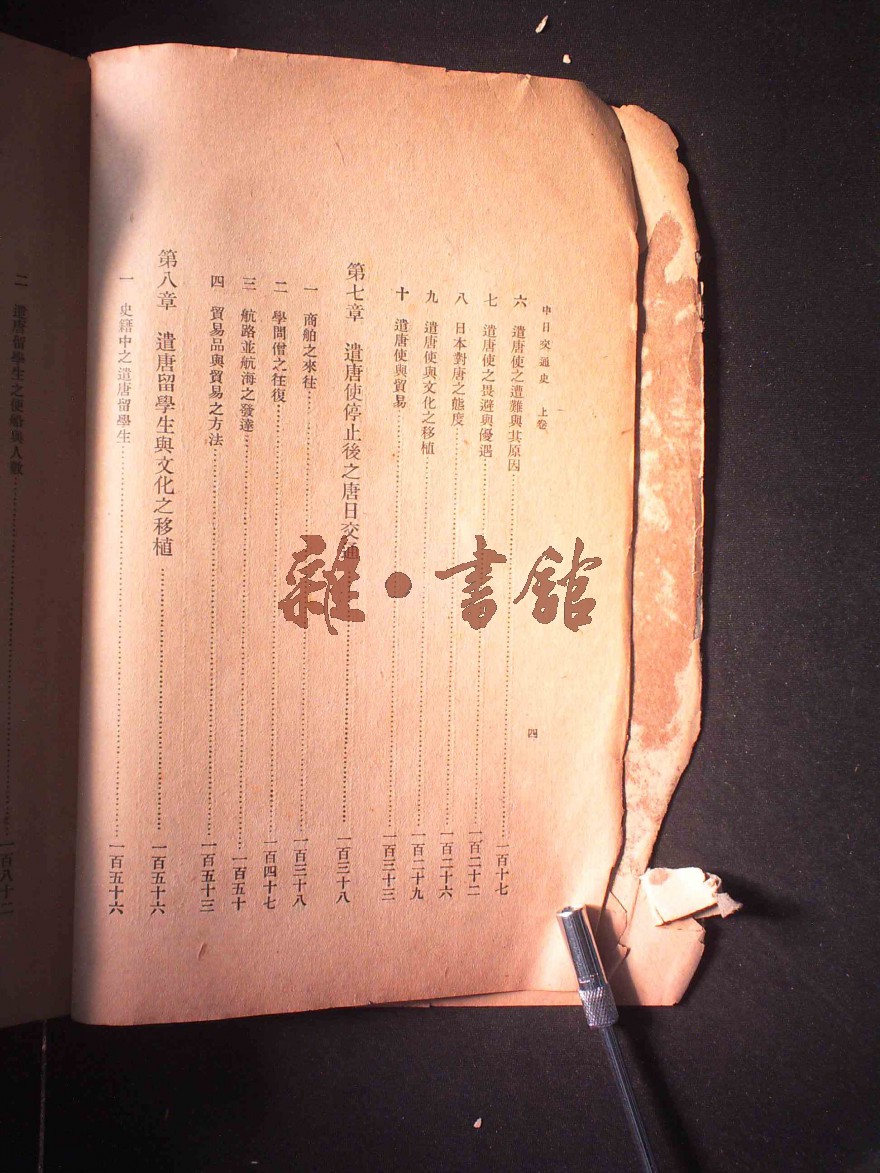 中日交通史 上卷
四
六 遣唐使之遭難與其原因 一百十七
七 遣唐使之畏避與優遇 一百二十二
八 日本對唐之態度 一百二十六
九 遣唐使與文化之移植 一百二十九
十 遣唐使與貿易 一百三十三
第七章 遣唐使停止後之唐日交通 一百三十八
一 商舶之來往 一百三十八
二 學問僧之往復 一百四十七
三 航路並航海之發達 一百五十
四 貿易品與貿易之方法 一百五十三
第八章 遣唐留學生與文化之移植 一百五十六
一 史籍中之遣唐留學生 一百五十六
二 遣唐留學生之便船與人數 一百八十二
雜·書館